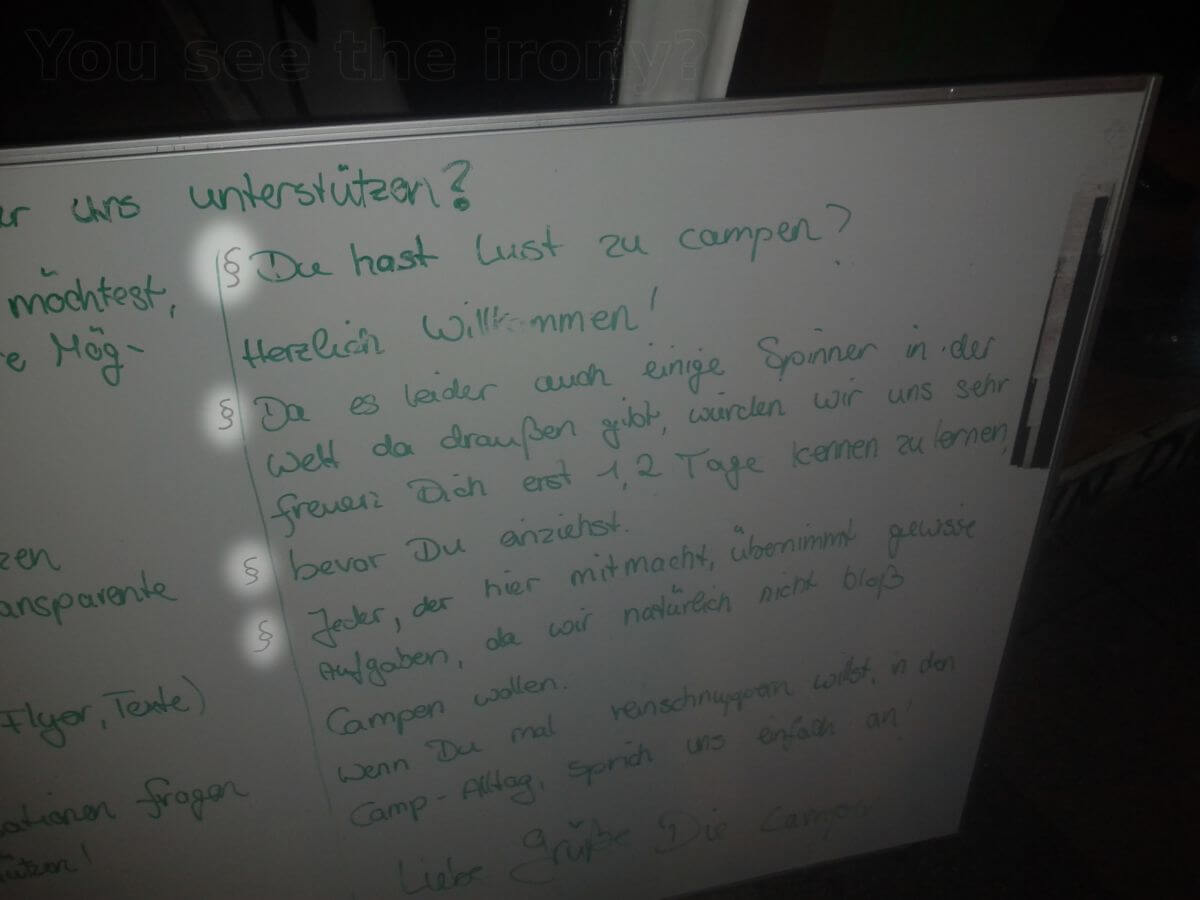 You see the irony?
uns unterstützen?
möchtest,
Mög-
ansparente
Flyer, Texte)
fragen
§ Du hast Lust zu campen?
Herzlich Willkommen!
§ Da es leider auch einige Spinner in der
Welt da draußen gibt, würden wir uns sehr
freuen: Dich erst 1,2 Tage kennen zu lernen,
§ bevor Du einziehst.
§ Jeder, der hier mitmacht, übernimmt gewisse
Aufgaben, da wir natürlich nicht bloß
Campen wollen.
Wenn Du mal reinschnuppern willst, in den
Camp-Alltag, sprich uns einfach an!
Liebe Grüße Die